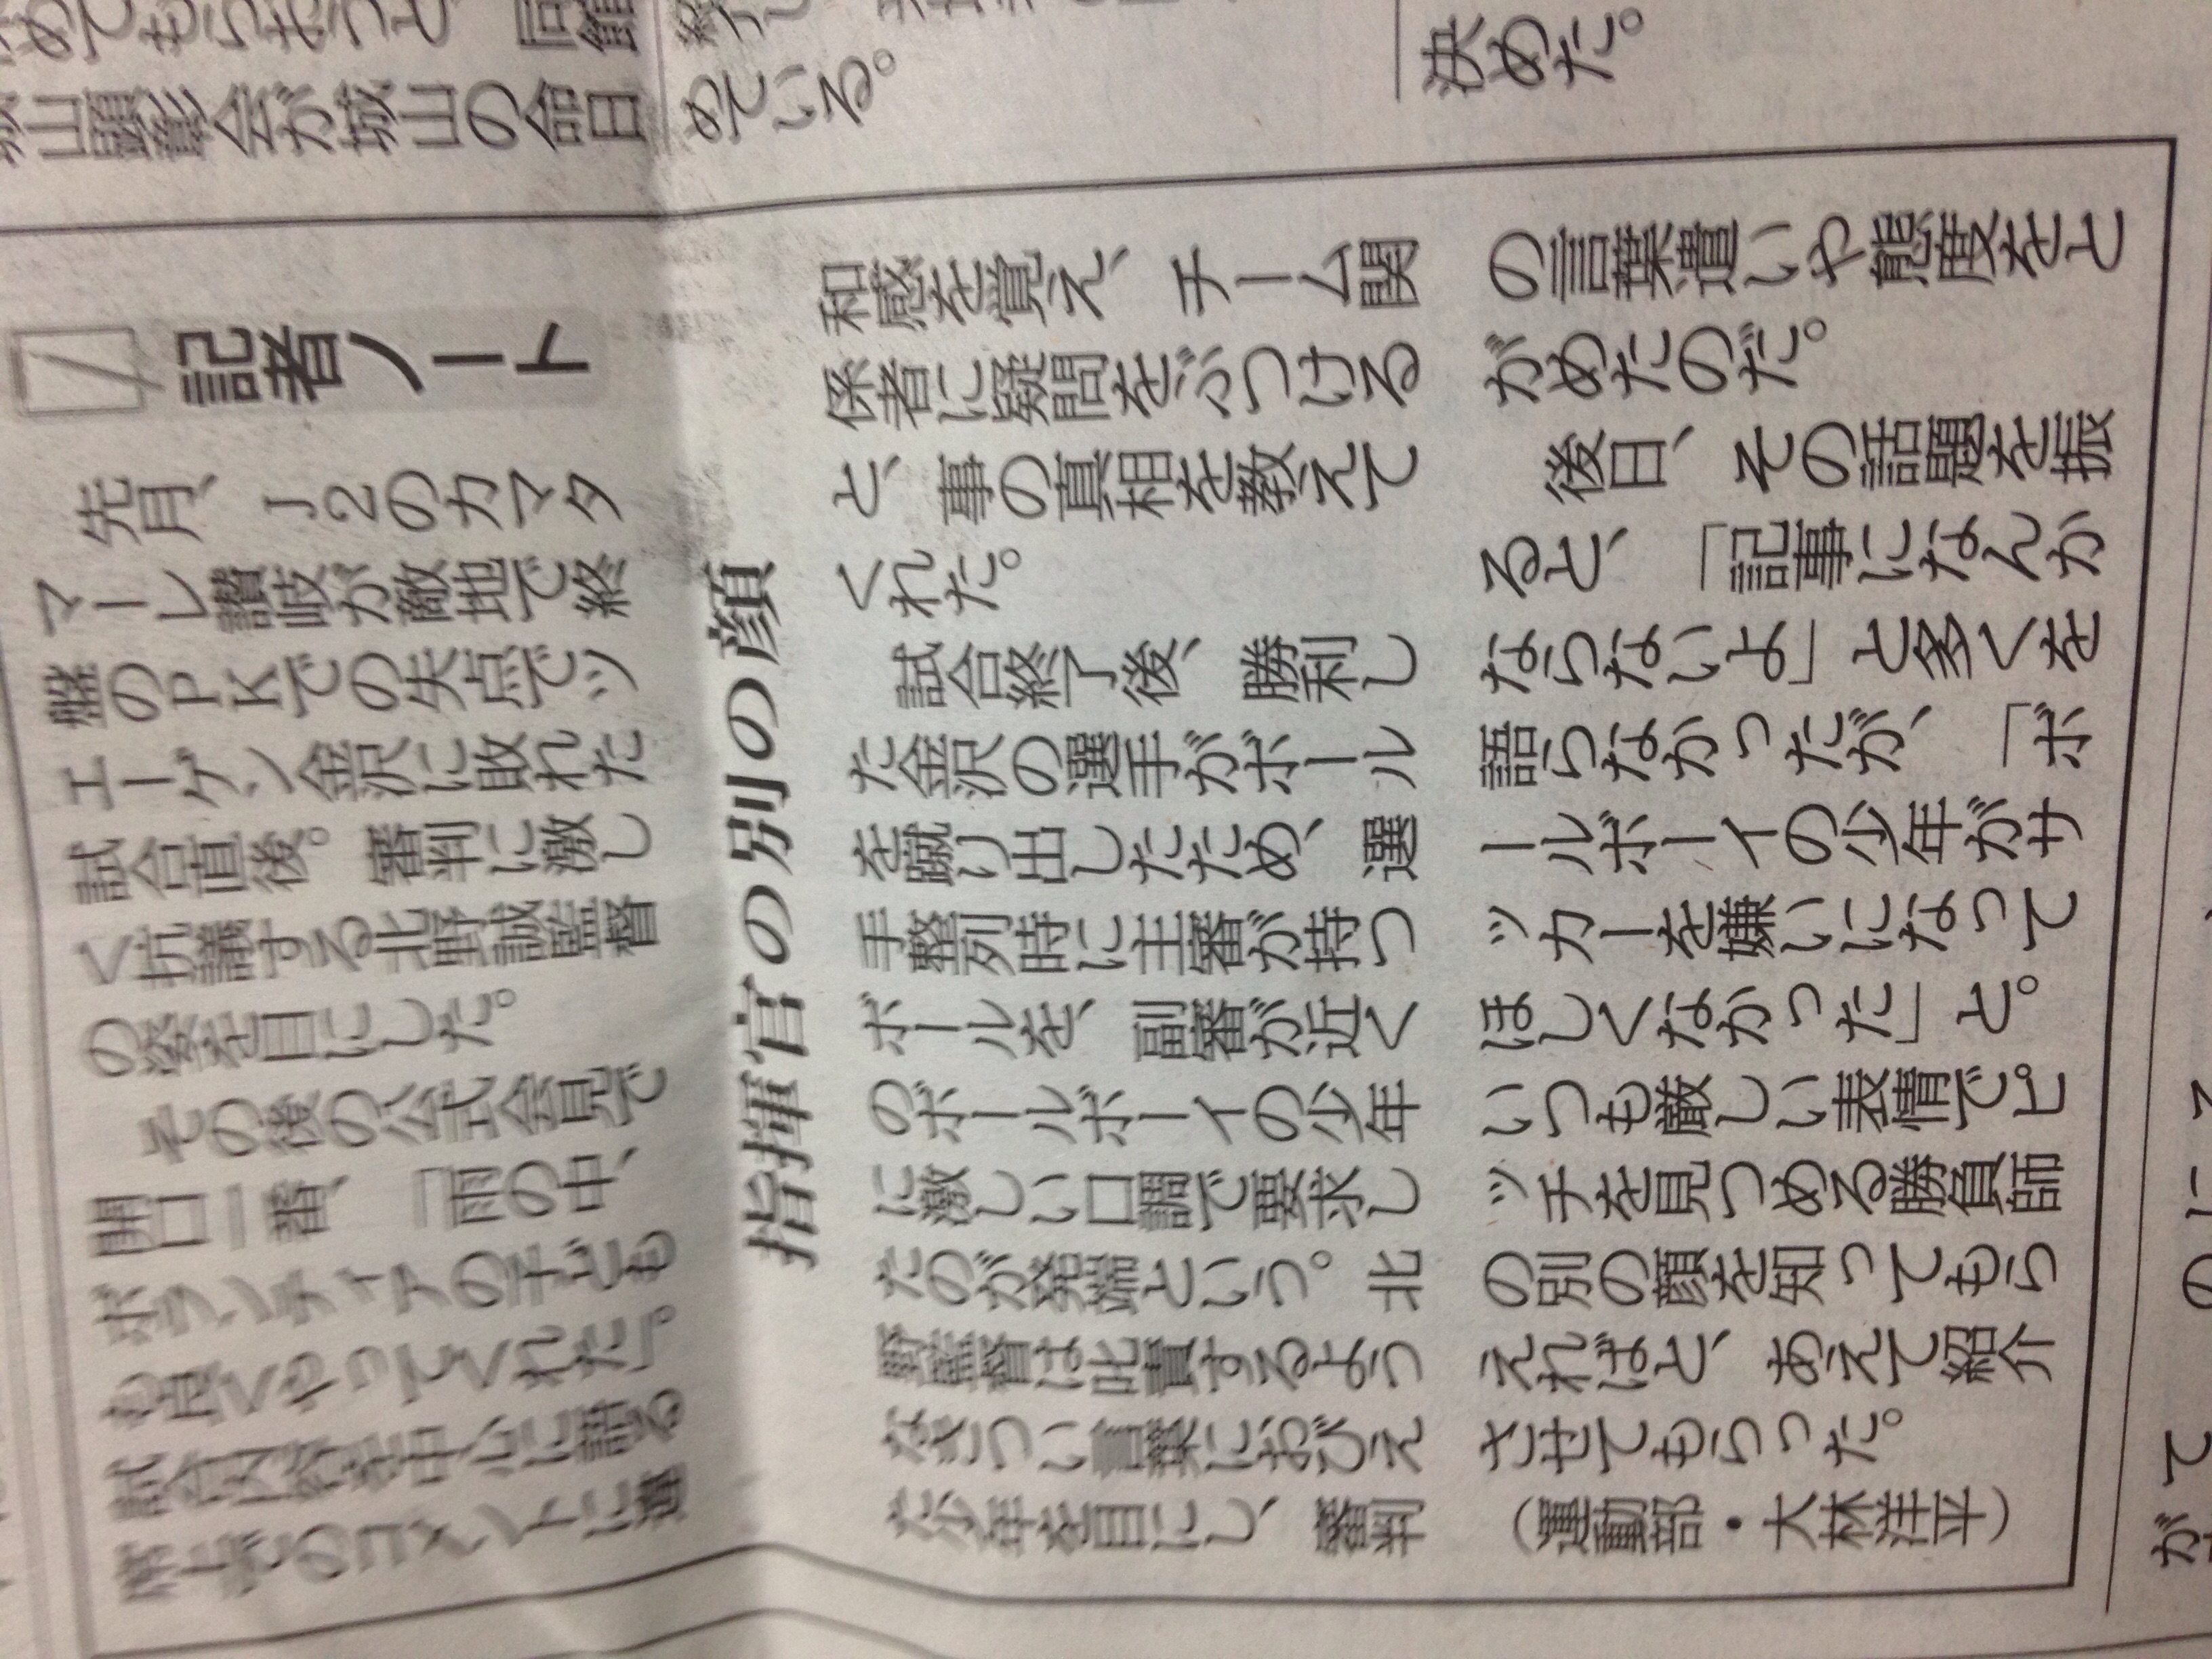 山顕彰会が城山の命日
めている。
決めた。
記者ノート
指揮官の別の顔
先月、J2のカマタ
マーレ讃岐が敵地で終
盤のPKでの失点でツ
エーゲン金沢に敗れた
試合直後。審判に激し
く抗議する北野誠監督
の姿を目にした。
その後の公式会見で
開口一番、「雨の中、
ボランティアの子ども
も良くやってくれた」。
試合内容を中心に語る
席上でのコメントに違
和感を覚え、チーム関
係者に疑問をぶつける
と、事の真相を教えて
くれた。
試合終了後、勝利し
た金沢の選手がボール
を蹴り出したため、選
手整列時に主審が持つ
ボールを、副審が近く
のボールボーイの少年
に激しい口調で要求し
たのが発端という。北
野監督は叱責するよう
なきつい言葉におびえ
た少年を目にし、審判
の言葉遣いや態度をと
がめたのだ。
後日、その話題を振
ると、「記事になんか
ならないよ」と多くを
語らなかったが、「ボ
ールボーイの少年がサ
ッカーを嫌いになって
ほしくなかった」と。
いつも厳しい表情でピ
ッチを見つめる勝負師
の別の顔を知ってもら
えればと、あえて紹介
させてもらった。
（運動部・大林洋平）